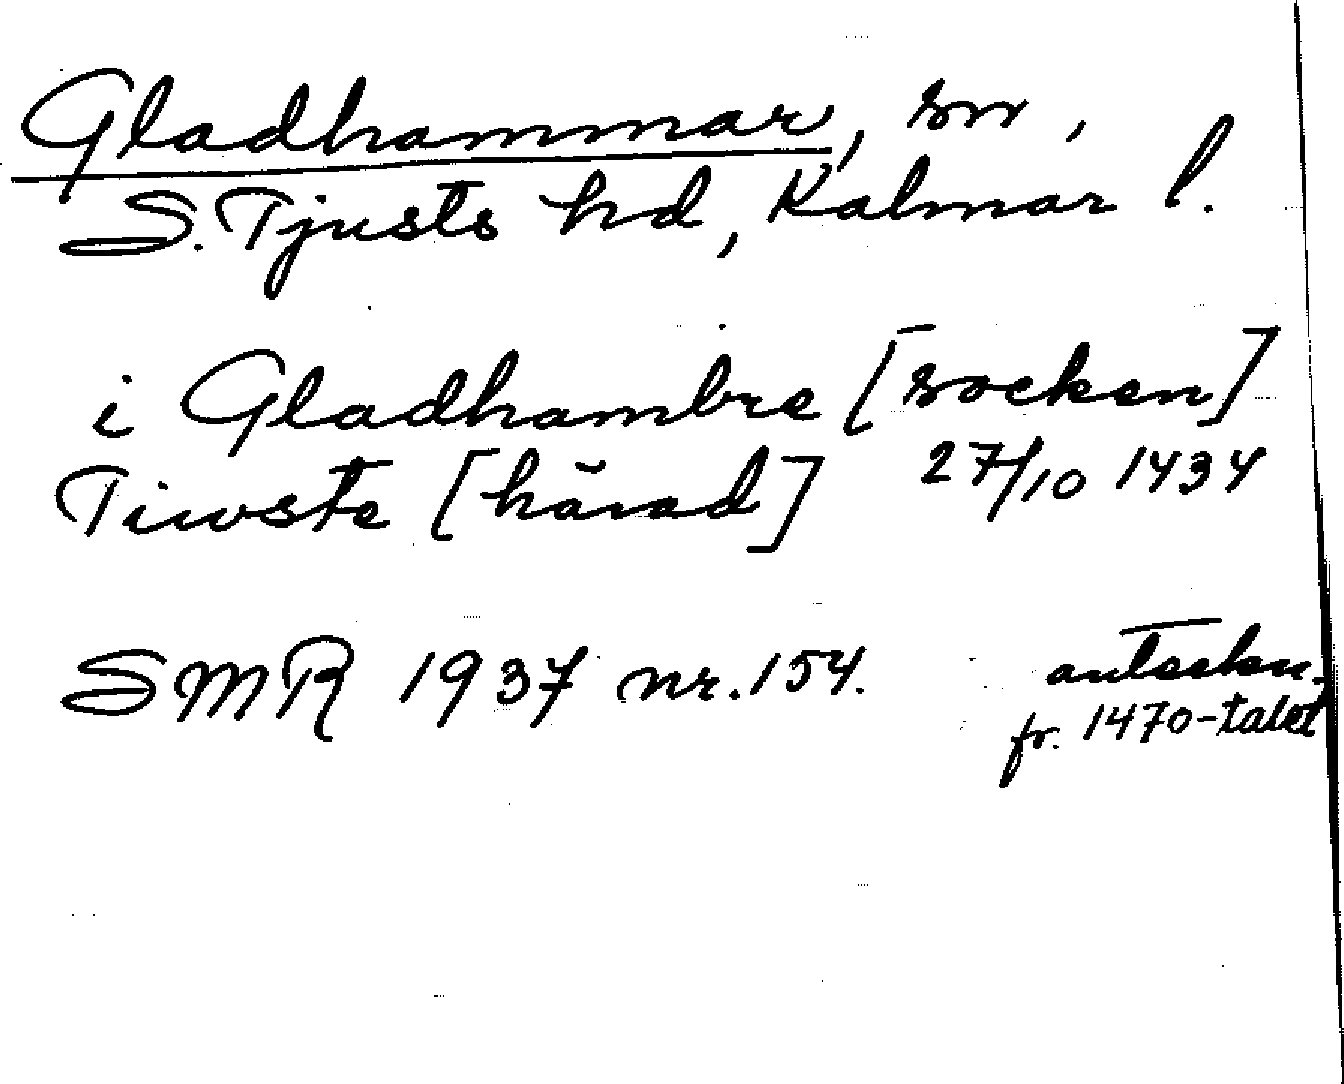 Gladhammar, sn,
S. Tjusts hd, Kalmar l.
i Gladhambre [socken]
Tiwste [härad] 27/10 1434
SMR 1937 nr. 154.
anteckn.
fr. 1470-talet